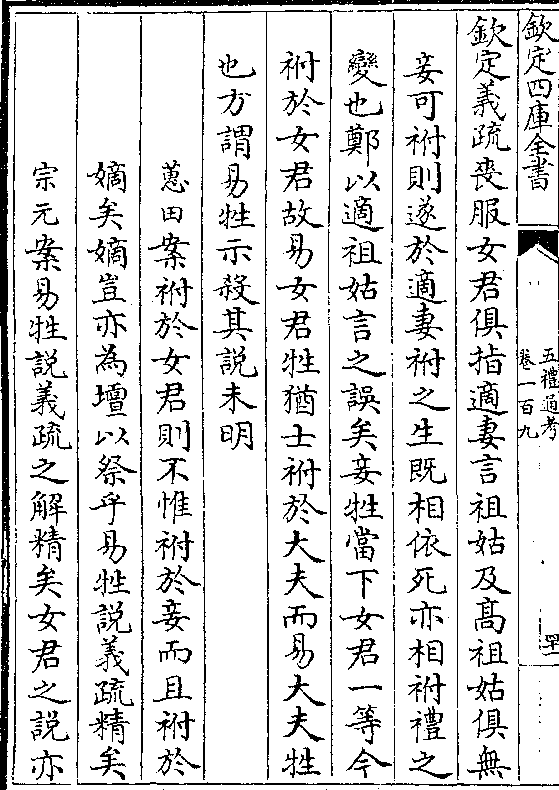 欽定四庫全書
五禮通考
卷一百九
欽定義疏喪服女君俱指適妻言祖姑及髙祖姑俱無
妾可祔則遂於適妻祔之生既相依死亦相祔禮之
變也鄭以適祖姑言之誤矣妾牲當下女君一等今
祔於女君故易女君牲猶士祔於大夫而易大夫牲
也方謂易牲示殺其說未明
蕙田案祔於女君則不惟祔於妾而且祔於
嫡矣嫡豈亦為壇以祭乎易牲說義疏精矣
宗元案易牲說義疏之解精矣女君之說亦